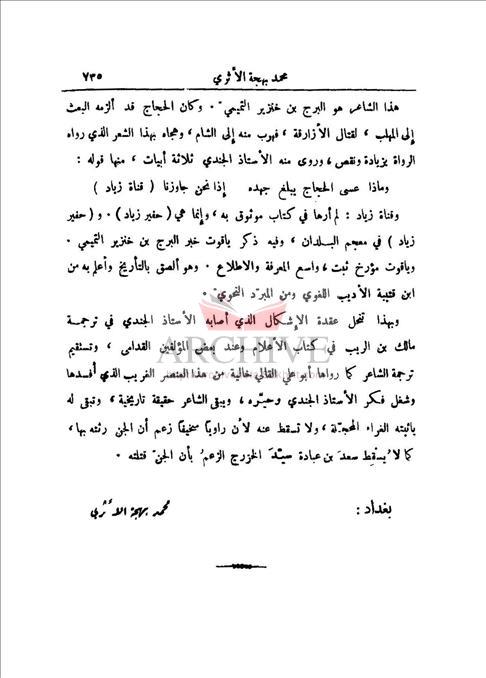 محمد بهجة الأثري ٧٣٥
هذا الشاعر هو البرج بن خنزير التميمي . وكان الحجاج قد ألزمه البعث
إلى المهلب ، لقتال الأزارقة ، فهرب منه إلى الشام ، وهجاه بهذا الشعر الذي رواه
الرواة بزيادة ونقص ، وروى منه الأستاذ الجندي ثلاثة أبيات ، منها قوله :
وماذا عسى الحجاج يبلغ جهده إذا نحن جاوزنا ( قناة زياد )
وقناة زياد : لم أرها في كتاب موثوق به ، وإنما هي ( حفير زياد ) . و ( حفير
زياد ) في معجم البلدان ، وفيه ذكر ياقوت خبر البرج بن خنزير التميمي .
وياقوت مؤرخ ثبت ، واسع المعرفة والاطلاع . وهو ألصق بالتأريخ وأعلم به من
ابن قتيبة الأديب اللغوي ومن المبرّد النحويّ .
وبهذا تنحل عقدة الإشكال الذي أصابه الأستاذ الجندي في ترجمة
مالك بن الريب في كتاب الأعلام وعند بعض المؤلفين القدامى ، وتستقيم
ترجمة الشاعر كما رواها أبو علي القالي خالية من هذا العنصر الغريب الذي أفسدها
وشغل فكر الأستاذ الجندي وحيّره ، ويبقى الشاعر حقيقة تاريخية ، وتبقى له
يائيته الغراء المحجّلة ، ولا تسقط عنه لأن راوياً سخيفاً زعم أن الجن رثته بها ،
كما لا يُسقِط سعدَ بن عبادة سيّدَ الخزرج الزعمُ بأن الجنّ قتلته .
بغداد : محمد بهجة الأثري
ARCHIVE